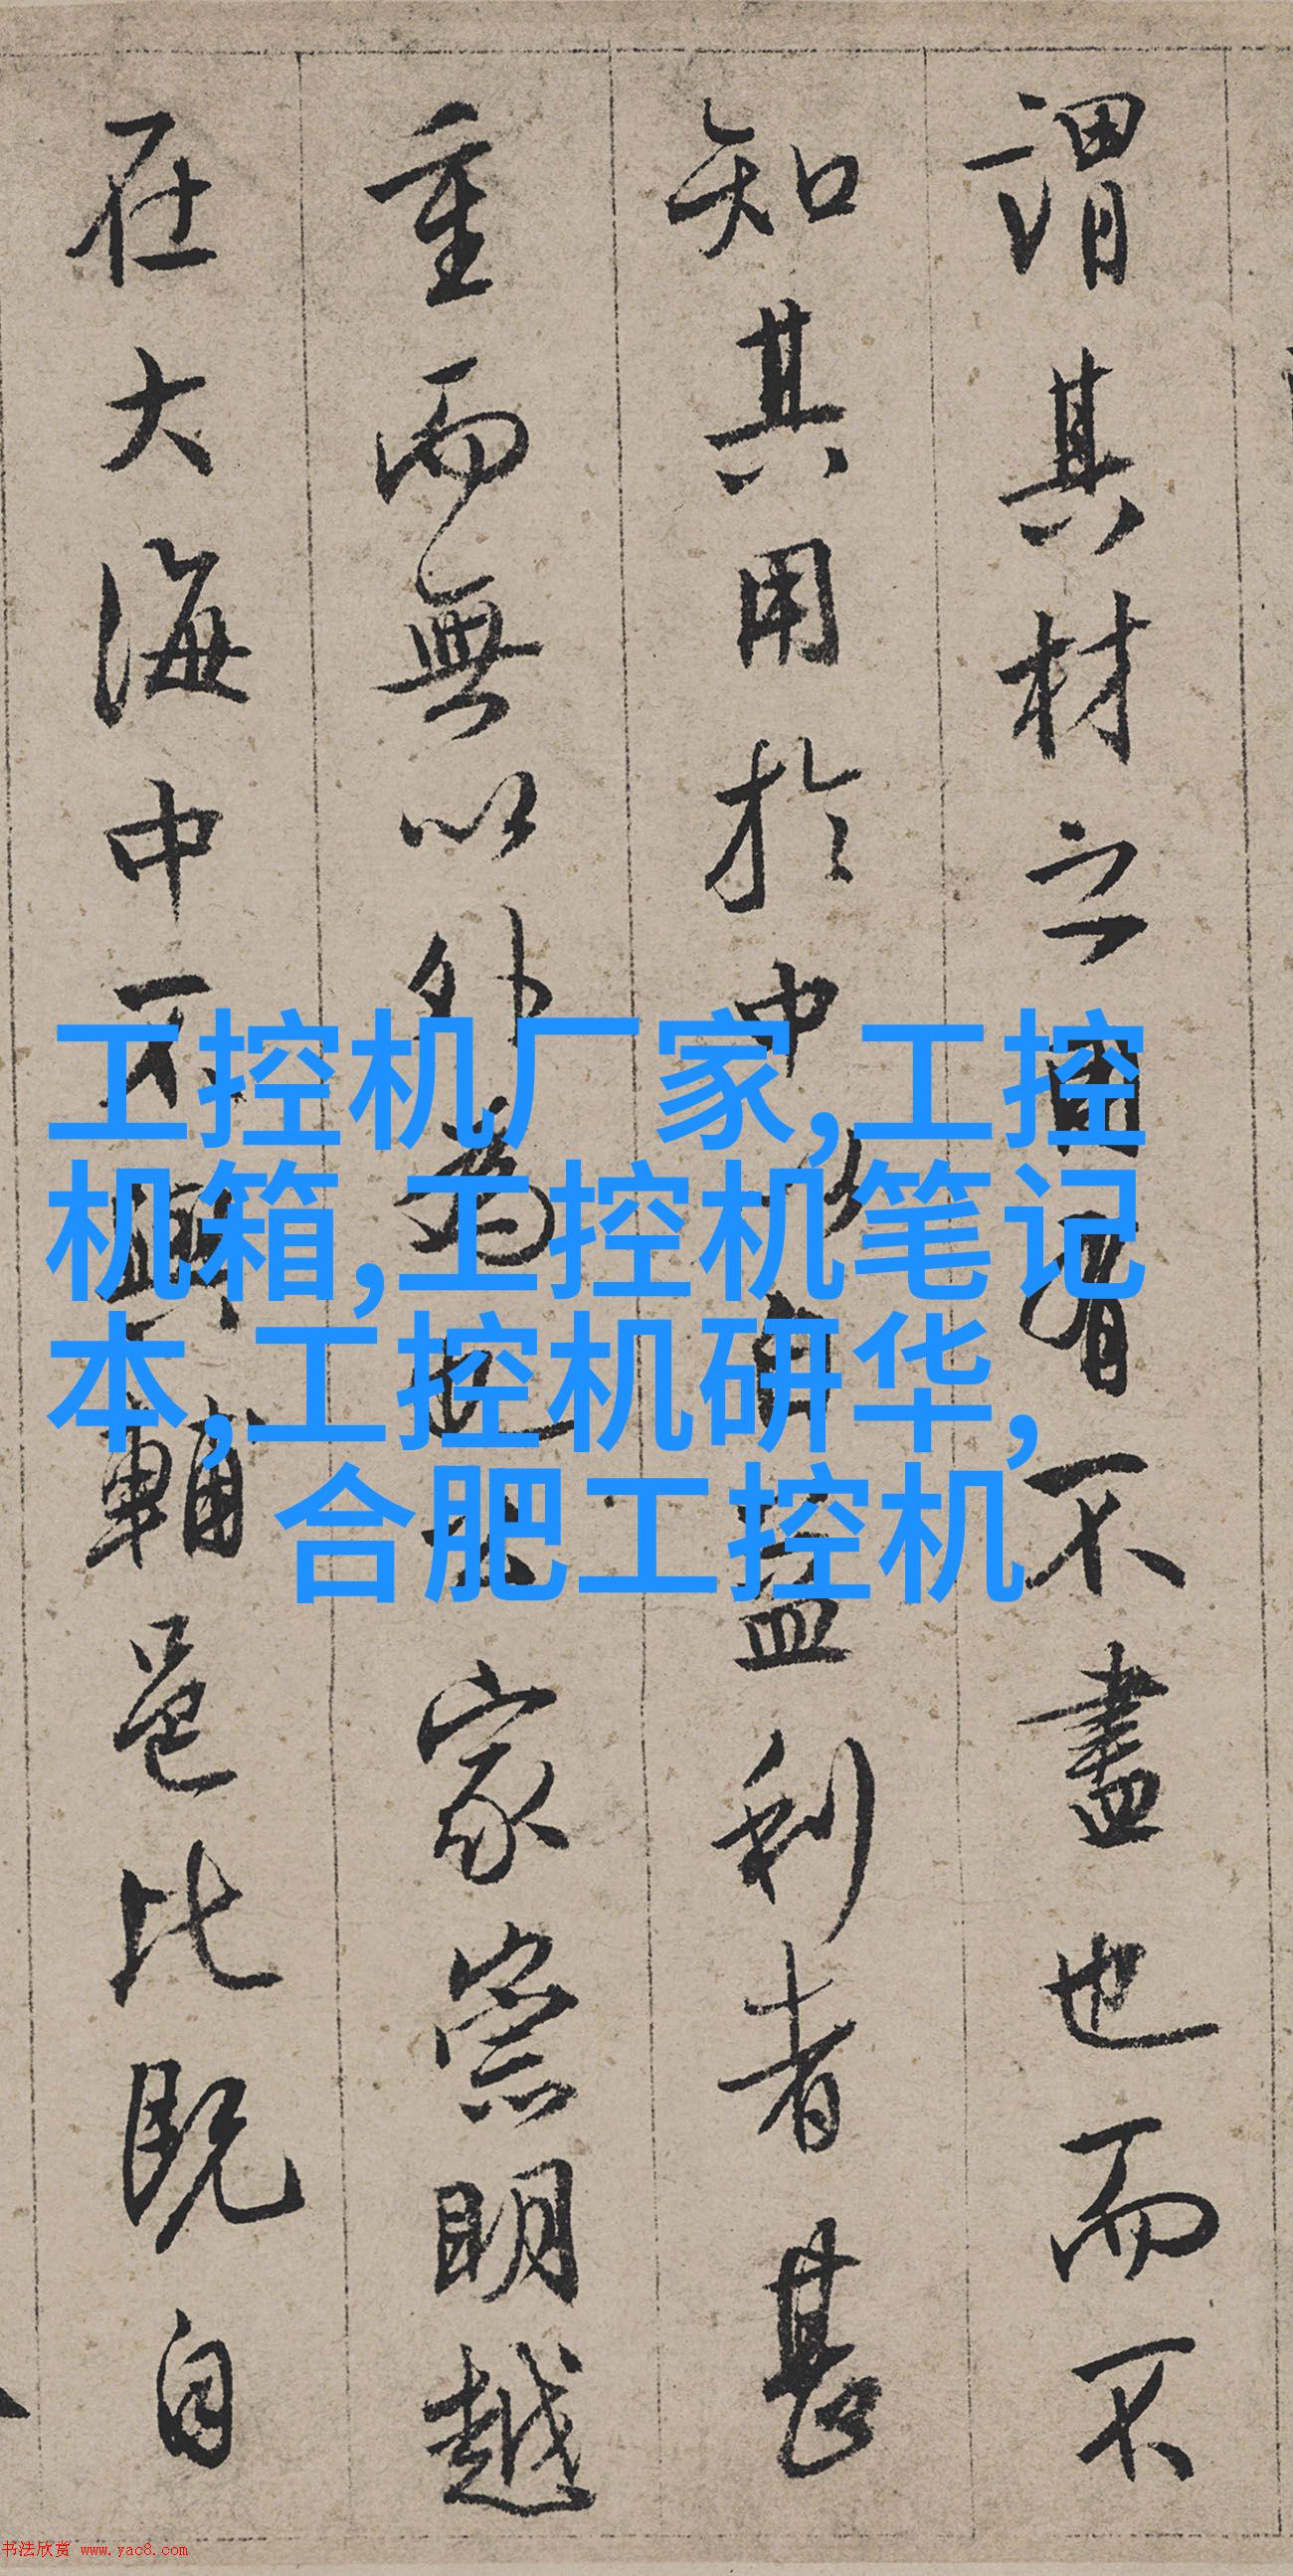 謂其材之用有不盡也而不
知其用於中以自益利者甚
重而無以外為也大家崇明越
在大海中不與輔邑比既自
工控机厂家,工控
机箱,工控机笔记
本,工控机研华,
合肥工控机
书法欣赏 www.yac8.com